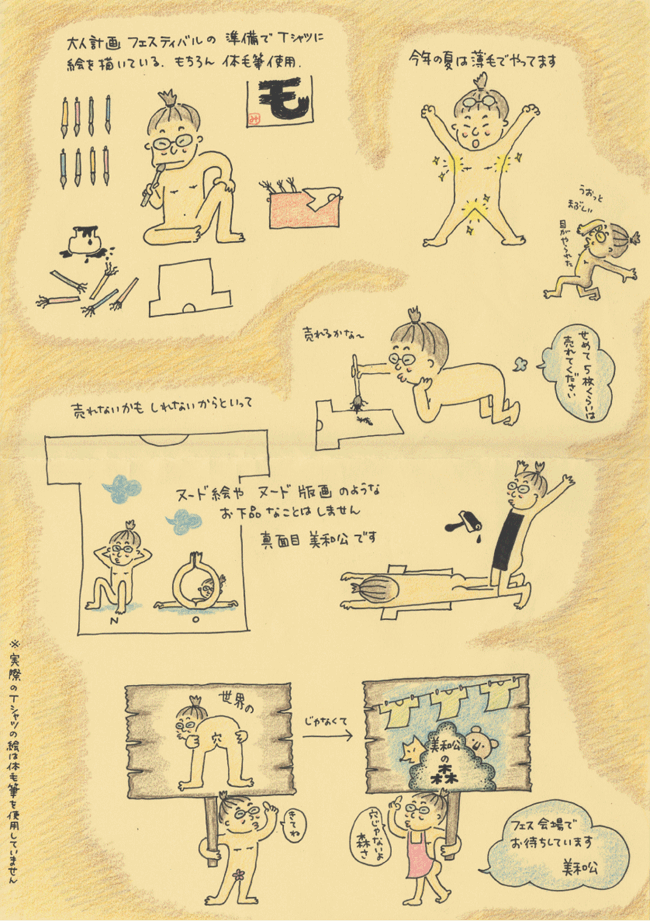 大人計画 フェスティバルの 準備で Tシャツに
絵を描いている. もちろん 体毛筆使用.
毛
み
今年の夏は薄毛でやってます
うおっと
まぶしい
目がやられた
売れるかな〜
せめて5枚くらいは
売れてください
売れないかも しれないからといって
ヌード絵や ヌード版画のような
お下品なことはしません
真面目 美和公です
N O
世界の
穴
じゃなくて
美和公
の
森
きてね
穴じゃないよ
森さ
フェス会場で
お待ちしています
美和公
※実際のTシャツの絵は体毛筆を使用していません